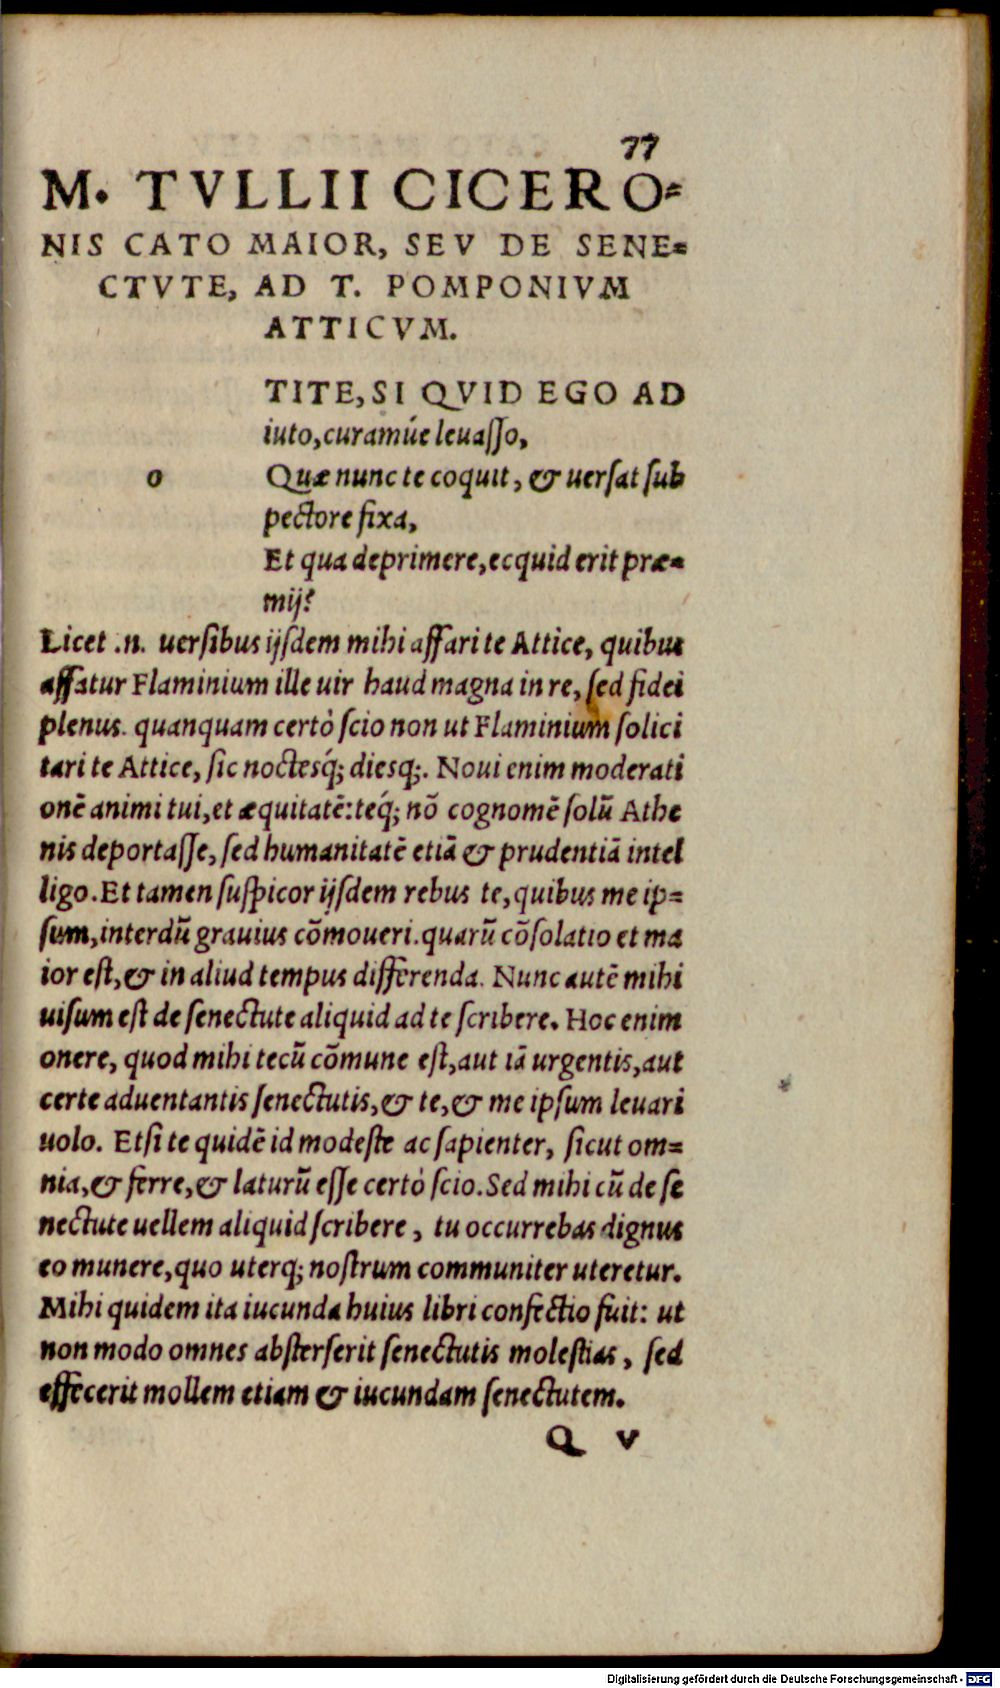 77
M. TVLLII CICERO=
NIS CATO MAIOR, SEV DE SENE=
CTVTE, AD T. POMPONIVM
ATTICVM.
TITE, SI QVID EGO AD
iuto, curamúe leuaſſo,
o Quæ nunc te coquit, & uerſat ſub
pectore fixa,
Et qua deprimere, ecquid erit præ=
mij?
Licet .n. uerſibus ijſdem mihi affari te Attice, quibus
affatur Flaminium ille uir haud magna in re, ſed fidei
plenus. quanquam certò ſcio non ut Flaminium ſolici
tari te Attice, ſic noctesq́; diesq;. Noui enim moderati
onē animi tui, et æquitatē: teq́; nō cognomē ſolū Athe
nis deportaſſe, ſed humanitatē etiā & prudentiā intel
ligo. Et tamen ſuſpicor ijſdem rebus te, quibus me ip=
ſum, interdū grauius cōmoueri. quarū cōſolatio et ma
ior eſt, & in aliud tempus differenda. Nunc autē mihi
uiſum eſt de ſenectute aliquid ad te ſcribere. Hoc enim
onere, quod mihi tecū cōmune eſt, aut iā urgentis, aut
certe aduentantis ſenectutis, & te, & me ipſum leuari
uolo. Etſi te quidē id modeſte ac ſapienter, ſicut om=
nia, & ferre, & laturū eſſe certò ſcio. Sed mihi cū de ſe
nectute uellem aliquid ſcribere, tu occurrebas dignus
eo munere, quo uterq; noſtrum communiter uteretur.
Mihi quidem ita iucunda huius libri confectio fuit: ut
non modo omnes abſterſerit ſenectutis moleſtias, ſed
effecerit mollem etiam & iucundam ſenectutem.
Q v
Digitalisierung gefördert durch die Deutsche Forschungsgemeinschaft - DFG